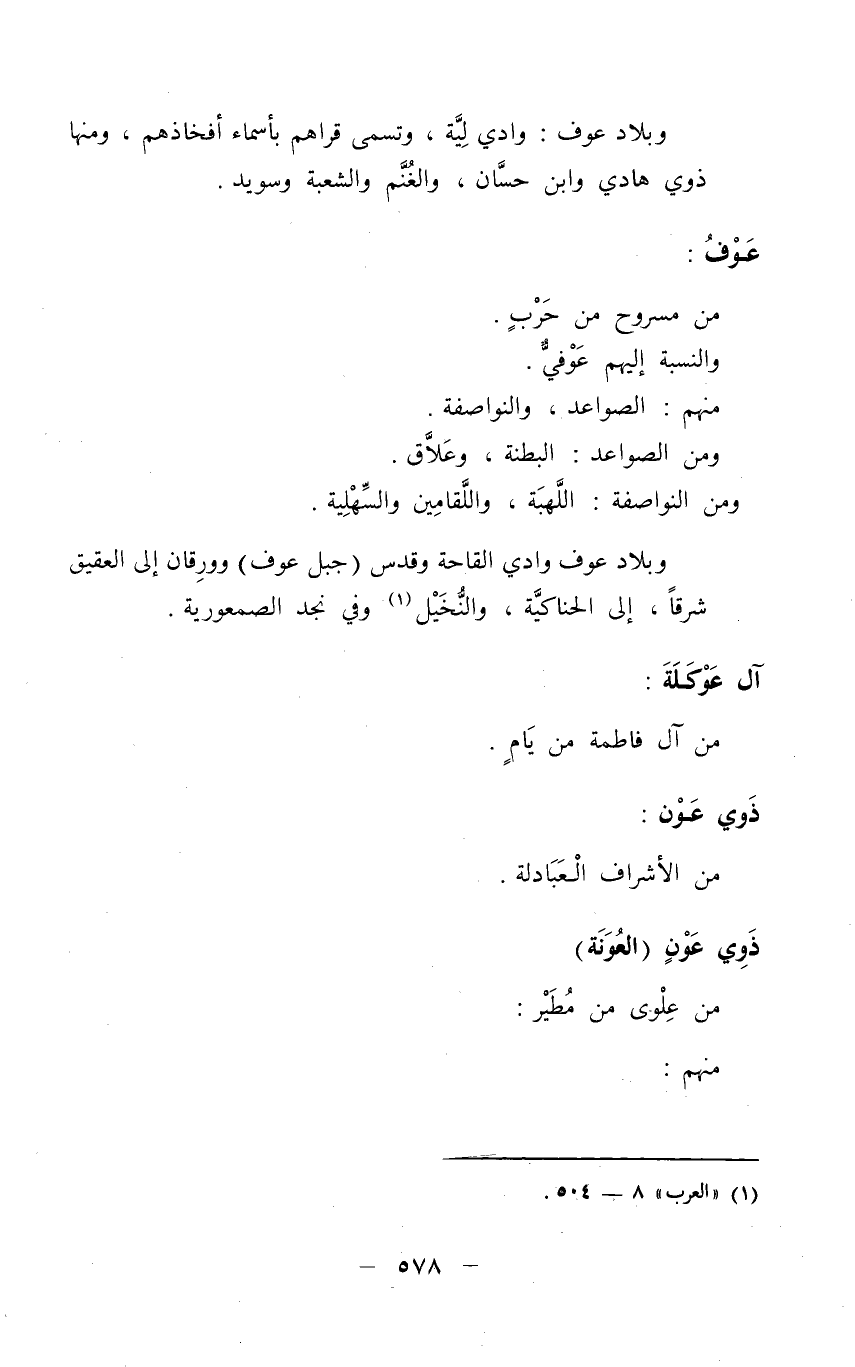 وبلاد عوف : وادي لِيَّة ، وتسمى قراهم بأسماء أفخاذهم ، ومنها
ذوي هادي وابن حسَّان ، والغُنَّم والشعبة وسويد .
عَوْفُ :
من مسروح من حَرْبٍ .
والنسبة إليهم عَوْفيٌّ .
منهم : الصواعد ، والنواصفة .
ومن الصواعد : البطنة ، وعَلاَّق .
ومن النواصفة : اللَّهبَة ، واللَّقامِين والسِّهْلِية .
وبلاد عوف وادي القاحة وقدس (جبل عوف) وورِقان إلى العقيق
شرقاً ، إلى الحناكيَّة ، والنُّخَيْل (١) وفي نجد الصمعورية .
آل عَوْكَلَةَ :
من آل فاطمة من يَامٍ .
ذَوي عَوْن :
من الأشراف الْعَبَادلة .
ذَوِي عَوْنٍ (العُوَنَة)
من عِلْوى من مُطَيْر :
منهم :
(١) «العرب» ٨ — ٥٠٤ .
— ٥٧٨ —